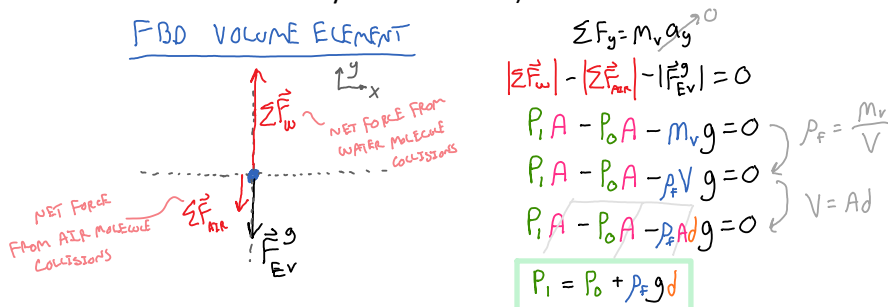 FBD VOLUME ELEMENT
y
x
ΣF⃗_W
NET FORCE FROM
WATER MOLECULE
COLLISIONS
NET FORCE
FROM AIR MOLECULE
COLLISIONS
ΣF⃗_AIR
F⃗^g_EV
ΣF_y = m_v a_y 0
|ΣF⃗_W| - |ΣF⃗_AIR| - |F⃗^g_EV| = 0
P₁A - P₀A - m_v g = 0
ρ_f = m_v/V
P₁A - P₀A - ρ_f V g = 0
V = Ad
P₁A - P₀A - ρ_f A d g = 0
P₁ = P₀ + ρ_f g d